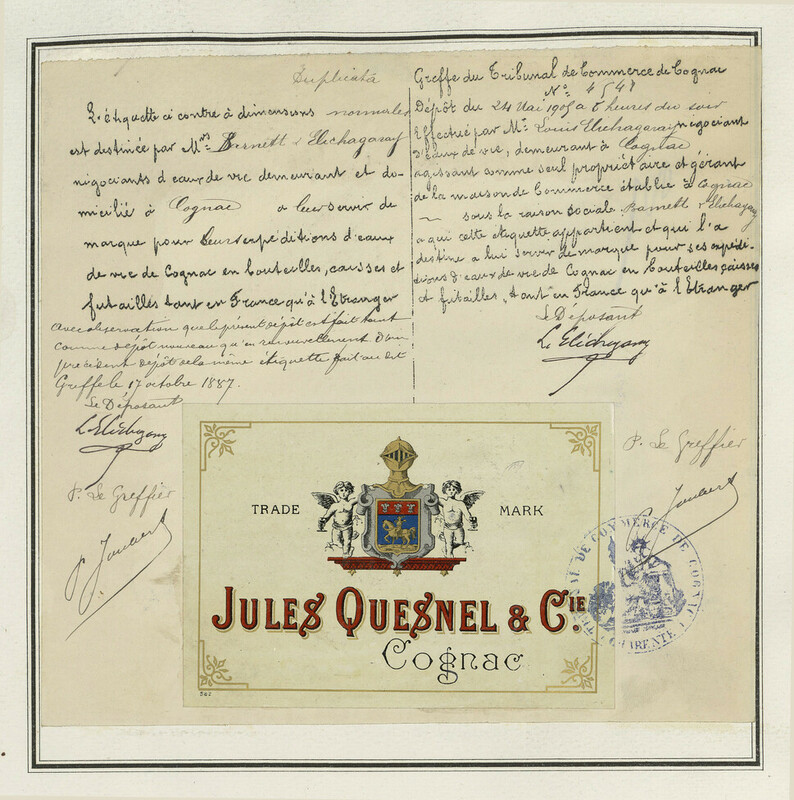 Duplicata
L'étiquette ci contre à dimensions normales
est destinée par Mrs Barnett & Elichagaray
négociants d'eaux de vie demeurant et do-
micilié à Cognac a leur servir de
marque pour leurs expéditions d'eaux
de vie de Cognac en bouteilles, caisses et
futailles tant en France qu'à l'Etranger
Avec observation que le présent dépôt est fait tant
comme dépôt nouveau qu'en renouvellement d'un
précédent dépôt de la même étiquette fait au dit
Greffe le 17 octobre 1887.
Le Déposant
L. Elichagaray
P. Le Greffier
P. Joubert
Greffe du Tribunal de Commerce de Cognac
No. 4548
Dépôt du 24 Mai 1905 à heures du soir
Effectué par Mr. Louis Elichagaray négociant
d'eaux de vie, demeurant à Cognac
agissant comme seul propriétaire et gérant
de la maison de Commerce établie à Cognac
sous la raison sociale Barnett & Elichagaray
a qui cette étiquette appartient et qui l'a
destine a lui servir de marque pour ses expédi-
tions d'eaux de vie de Cognac en bouteilles, caisses
et futailles, tant en France qu'à l'Etranger
Le Déposant
L. Elichagaray
P. Le Greffier
Joubert
TRADE MARK
JULES QUESNEL & CIE.
Cognac
TRIBUNAL DE COMMERCE DE COGNAC
(CHARENTE)